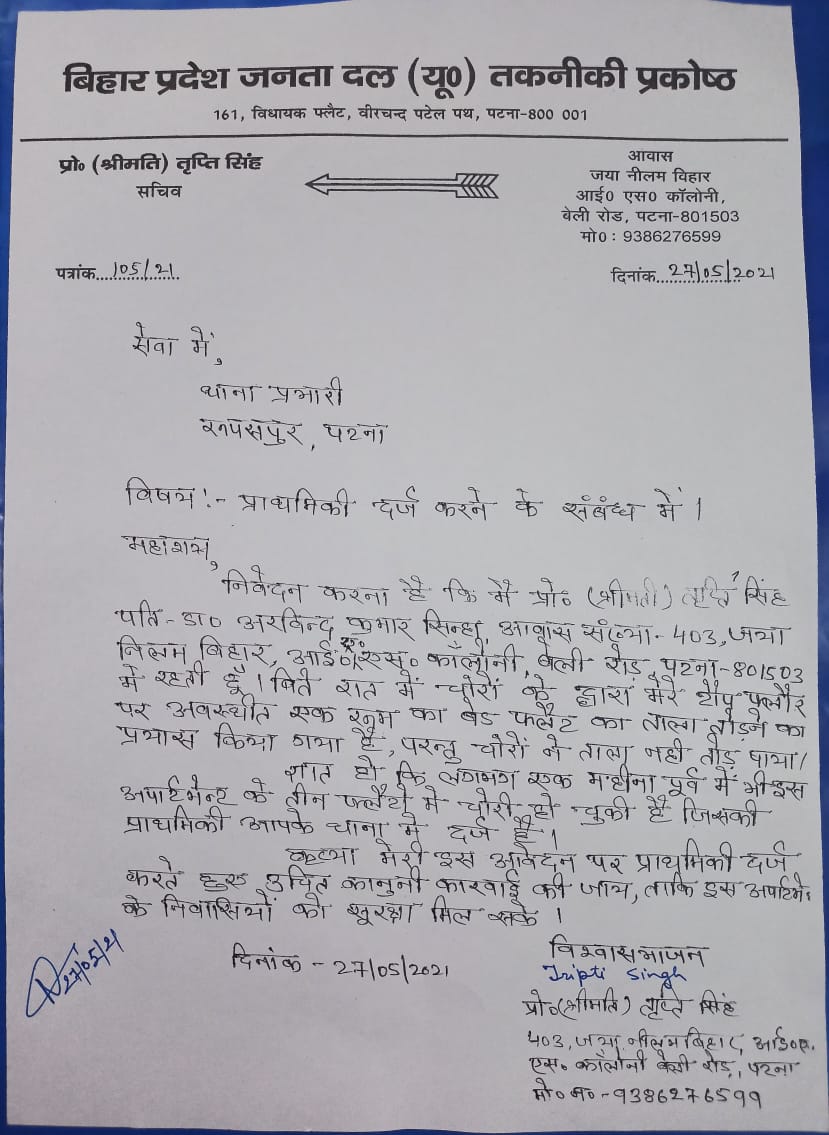 बिहार प्रदेश जनता दल (यू०) तकनीकी प्रकोष्ठ
161, विधायक फ्लैट, वीरचन्द पटेल पथ, पटना-800 001
प्रो० (श्रीमति) तृप्ति सिंह
सचिव
आवास
जया नीलम विहार
आई० एस० कॉलोनी,
बेली रोड, पटना-801503
मो० : 9386276599
पत्रांक....105/21
दिनांक....27/05/2021
सेवा में,
थाना प्रभारी
रूपसपुर, पटना
विषय :- प्राथमिकी दर्ज करने के संबंध में।
महाशय,
निवेदन करना है कि मैं प्रो० (श्रीमती) तृप्ति सिंह
पति - डा० अरविन्द कुमार सिन्हा, आवास संख्या - 403, जया
निलम बिहार, आई० एस० कॉलोनी, बेली रोड, पटना-801503
में रहती हूँ। बिते रात में चोरों के द्वारा मेरे टॉप फ्लोर
पर अवस्थीत एक रूम का बेड फ्लैट का ताला तोड़ने का
प्रयास किया गया है, परन्तु चोरों ने ताला नही तोड़ पाया।
ज्ञात हो कि लगभग एक महीना पूर्व में भी इस
अपार्टमेन्ट के तीन फ्लैटो मे चोरी हो चुकी है जिसकी
प्राथमिकी आपके थाना में दर्ज है।
कृप्या मेरी इस आवेदन पर प्राथमिकी दर्ज
करते हुए उचित कानुनी कारवाई की जाय, ताकि इस
के निवासियों को सुरक्षा मिल सके।
दिनांक - 27/05/2021
विश्वासभाजन
Tripti Singh
27/05/21
प्रो० (श्रीमति) तृप्ति सिंह
403, जया नीलम बिहार, आई०
एस० कॉलोनी बेली रोड, पटना
मो० न० - 9386276599